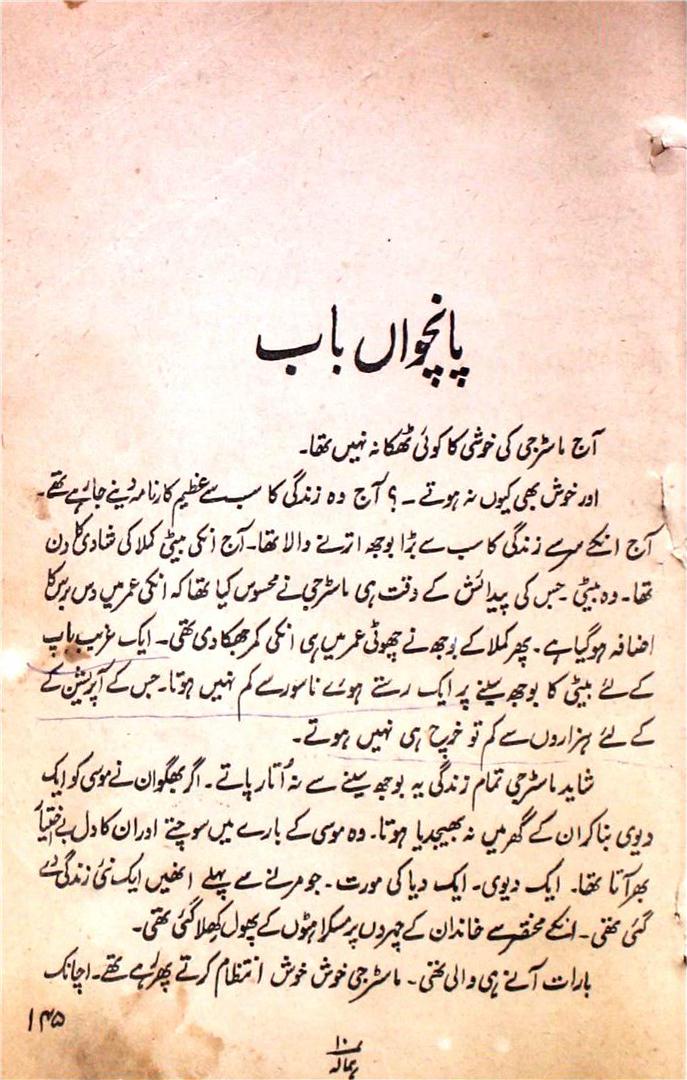 پانچواں باب
آج ماسٹر جی کی خوشی کا کوئی ٹھکانہ نہیں تھا۔
اور خوش بھی کیوں نہ ہوتے ۔ ؟ آج وہ زندگی کا سب سے عظیم کارنامہ دینے جا رہے تھے۔
آج انکے سر سے زندگی کا سب سے بڑا بوجھ اترنے والا تھا۔ آج انکی بیٹی کملا کی شادی کا دن
تھا۔ وہ بیٹی۔ جس کی پیدائش کے وقت ہی ماسٹر جی نے محسوس کیا تھا کہ انکی عمر میں دس برس کا
اضافہ ہو گیا ہے۔ پھر کملا کے بوجھ نے چھوٹی عمر میں ہی انکی کمر جھکا دی تھی۔ ایک غریب باپ
کے لئے بیٹی کا بوجھ سینے پر ایک رستے ہوئے ناسور سے کم نہیں ہوتا۔ جس کے آپریشن کے
کے لئے ہزاروں سے کم تو خرچ ہی نہیں ہوتے۔
شاید ماسٹر جی تمام زندگی یہ بوجھ سینے سے نہ اُتار پاتے۔ اگر بھگوان نے موسی کو ایک
دیوی بنا کر ان کے گھر میں نہ بھیجدیا ہوتا۔ وہ موسی کے بارے میں سوچتے اور ان کا دل بے اختیار
بھر آتا تھا۔ ایک دیوی۔ ایک دیا کی مورت۔ جو مرنے سے پہلے انھیں ایک نئی زندگی دے
گئی تھی۔ انکے مختصر سے خاندان کے چہروں پر مسکراہٹوں کے پھول کھلا گئی تھی۔
بارات آنے ہی والی تھی۔ ماسٹر جی خوش خوش انتظام کرتے پھر رہے تھے۔ اچانک
۱۴۵
۱۰
ہمالہ